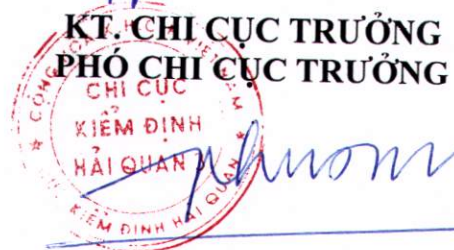 KT. CHI CỤC TRƯỞNG
PHÓ CHI CỤC TRƯỞNG
CHI CỤC
KIỂM ĐỊNH
HẢI QUAN
KIỂM ĐỊNH HẢI QUAN